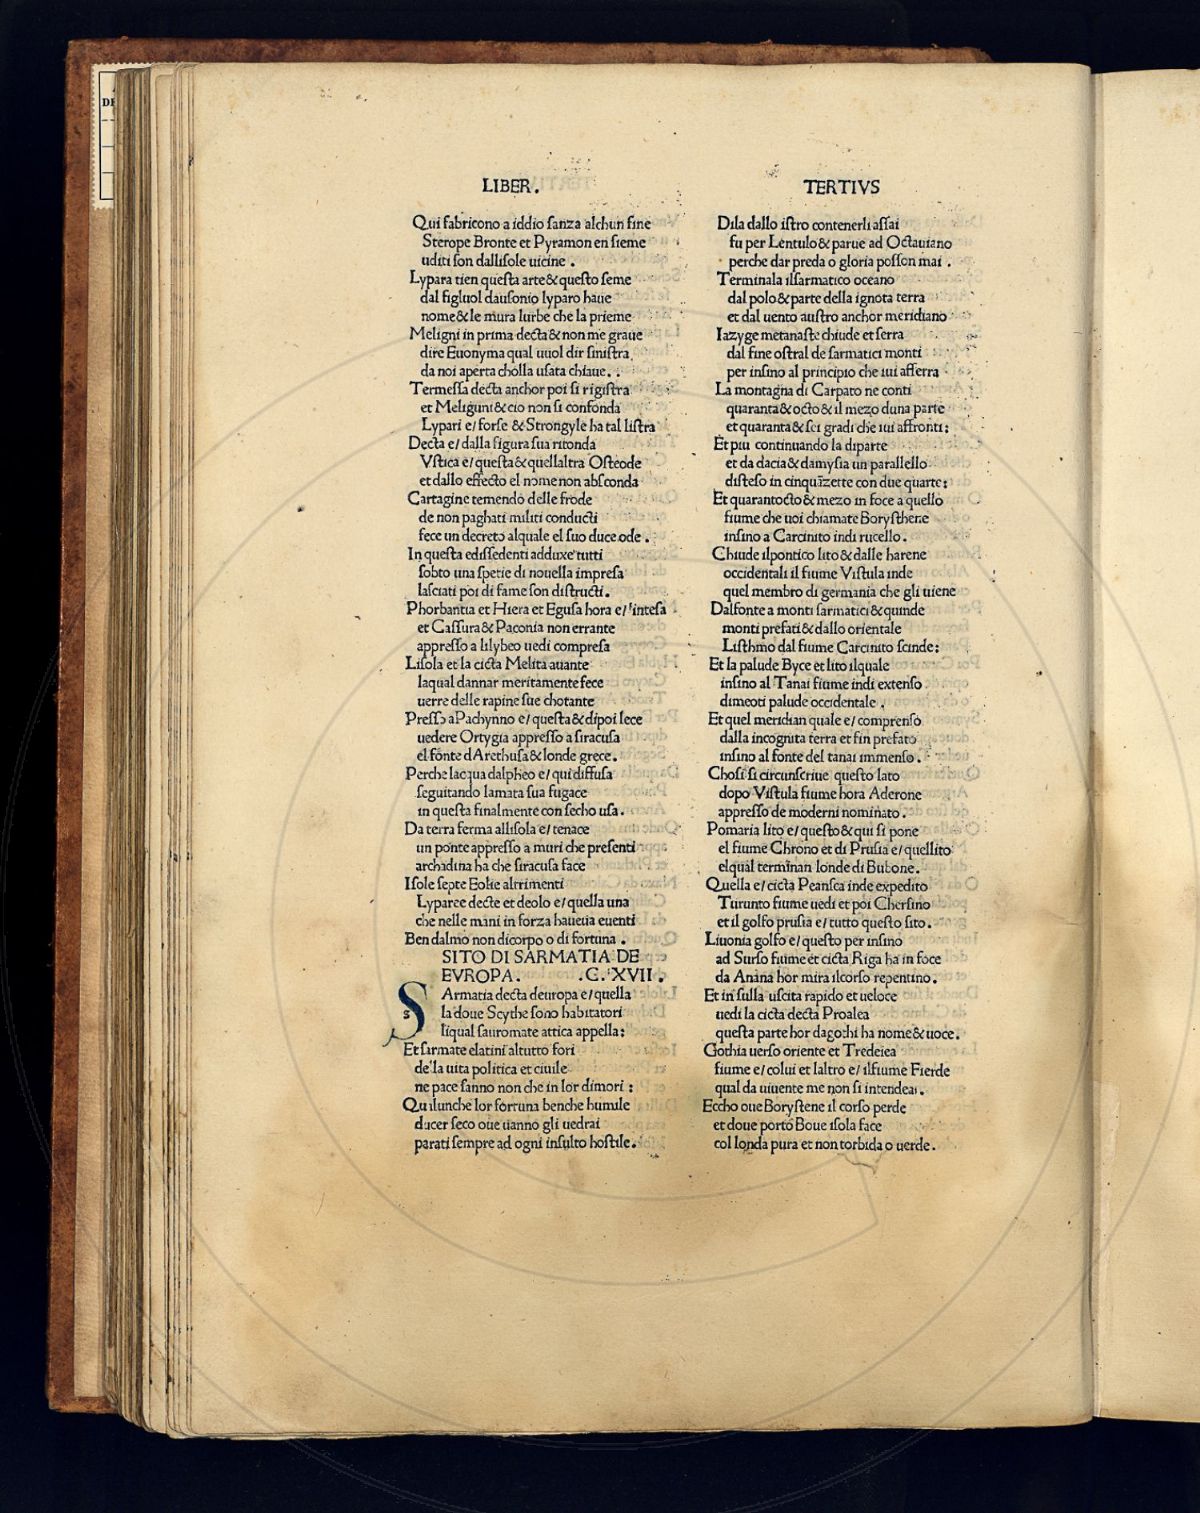 LIBER.
Qui fabricono a iddio ſanza alchun fine
Sterope Bronte et Pyramon en ſieme
uditi ſon dalliſole uicine .
Lypara tien queſta arte & queſto ſeme
dal figluol dauſonio lyparo haue
nome & le mura lurbe che la prieme
Meligni in prima decta & non me graue
dire Euonyma qual uuol dir ſiniſtra
da noi aperta cholla uſata chiaue. .
Termeſſa decta anchor poi ſi rigiſtra
et Meliguni & cio non ſi confonda
Lypari e/ forſe & Strongyle ha tal liſtra
Decta e/ dalla figura ſua ritonda
Vſtica e/ queſta & quellaltra Oſteode
et dallo effecto el nome non abſconda
Cartagine temendo delle frode
de non paghati militi conducti
fece un decreto alquale el ſuo duce ode .
In queſta ediſſedenti adduxe tutti
ſobto una ſpetie di nouella impreſa
laſciati poi di fame ſon diſtructi .
Phorbantia et Hiera et Eguſa hora e/ inteſa
et Caſſura & Paconia non errante
appreſſo a lilybeo uedi compreſa
Liſola et la cicta Melita auante
laqual dannar meritamente fece
uerre delle rapine ſue chotante
Preſſo a Pachynno e/ queſta & dipoi lece
uedere Ortygia appreſſo a ſiracuſa
el fonte dArethuſa & londe grece .
Perche lacqua dalpheo e/ qui diffuſa
ſeguitando lamata ſua fugace
in queſta finalmente con ſecho uſa .
Da terra ferma alliſola e/ tenace
un ponte appreſſo a muri che preſenti
archadina ha che ſiracuſa face
Iſole ſepte Eolie altrimenti
Lyparee decte et deolo e/ quella una
che nelle mani in forza haueua euenti
Ben dalmo non dicorpo o di fortuna .
SITO DI SARMATIA DE
EVROPA . .C. XVII .
S Armatia decta deuropa e/ quella
s la doue Scythe ſono habitatori
liqual ſauromate attica appella:
Et ſarmate elatini al tutto fori
della uita politica et ciuile
ne pace ſanno non che in lor dimori :
Qualunche lor fortuna benche humile
ducer ſeco oue uanno gli uedrai
parati ſempre ad ogni inſulto hoſtile .
TERTIVS
Dila dallo iſtro contenerli aſſai
fu per Lentulo & parue ad Octauiano
perche dar preda o gloria poſſon mai .
Terminala ilſarmatico oceano
dal polo & parte della ignota terra
et dal uento auſtro anchor meridiano
Iazyge metanaſte chiude et ſerra
dal fine oſtral de ſarmatici monti
per inſino al principio che iui afferra
La montagna di Carpato ne conti
quaranta & octo & il mezo duna parte
et quaranta & ſei gradi che iui affronti :
Et piu continuando la diparte
et da dacia & damyſia un parallello
diſteſo in cinquāzette con due quarte :
Et quarantocto & mezo in foce a quello
fiume che uoi chiamate Boryſthene
inſino a Carcinito indi rucello .
Chiude ilpontico lito & dalle harene
occidentali il fiume Viſtula inde
quel membro di germania che gli uiene
Dalfonte a monti ſarmatici & quinde
monti prefati & dallo orientale
Liſthmo dal fiume Carcinito ſcinde :
Et la palude Byce et lito ilquale
inſino al Tanai fiume indi extenſo
dimeoti palude occidentale .
Et quel meridian quale e/ comprenſo
dalla incognita terra et fin prefato
inſino al fonte del tanai immenſo .
Choſi ſi circunſcriue queſto lato
dopo Viſtula fiume hora Aderone
appreſſo de moderni nominato .
Pomaria lito e/ queſto & qui ſi pone
el fiume Chrono et di Pruſia e/ quellito
elqual terminan londe di Bubone .
Quella e/ cicta Peanſca inde expedito
Turunto fiume uedi et poi Cherſino
et il golfo pruſia e/ tutto queſto ſito .
Liuonia golfo e/ queſto per inſino
ad Surſo fiume et cicta Riga ha in foce
da Anana hor mira ilcorſo repentino .
Et in ſulla uſcita rapido et ueloce
uedi la cicta decta Proalea
queſta parte hor dagothi ha nome & uoce .
Gothia uerſo oriente et Tredeiea
fiume e/ colui et laltro e/ ilfiume Fierde
qual da uiuente me non ſi intendea .
Eccho oue Boryſtene il corſo perde
et doue porto Boue iſola face
col londa pura et non torbida o uerde .